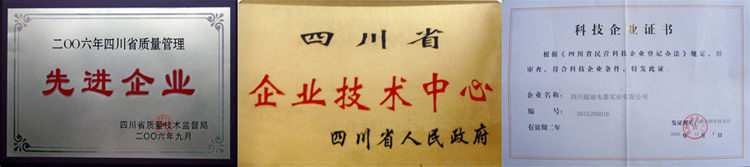 二OO六年四川省质量管理
先进企业
四川省质量技术监督局
二OO六年九月
四川省
企业技术中心
四川省人民政府
科技企业证书
根据《四川省民营科技企业登记办法》规定，经
审查，符合科技企业条件，特发此证。
企业名称：四川超迪电器实业有限公司
编号：
有效期二年
发证机关：